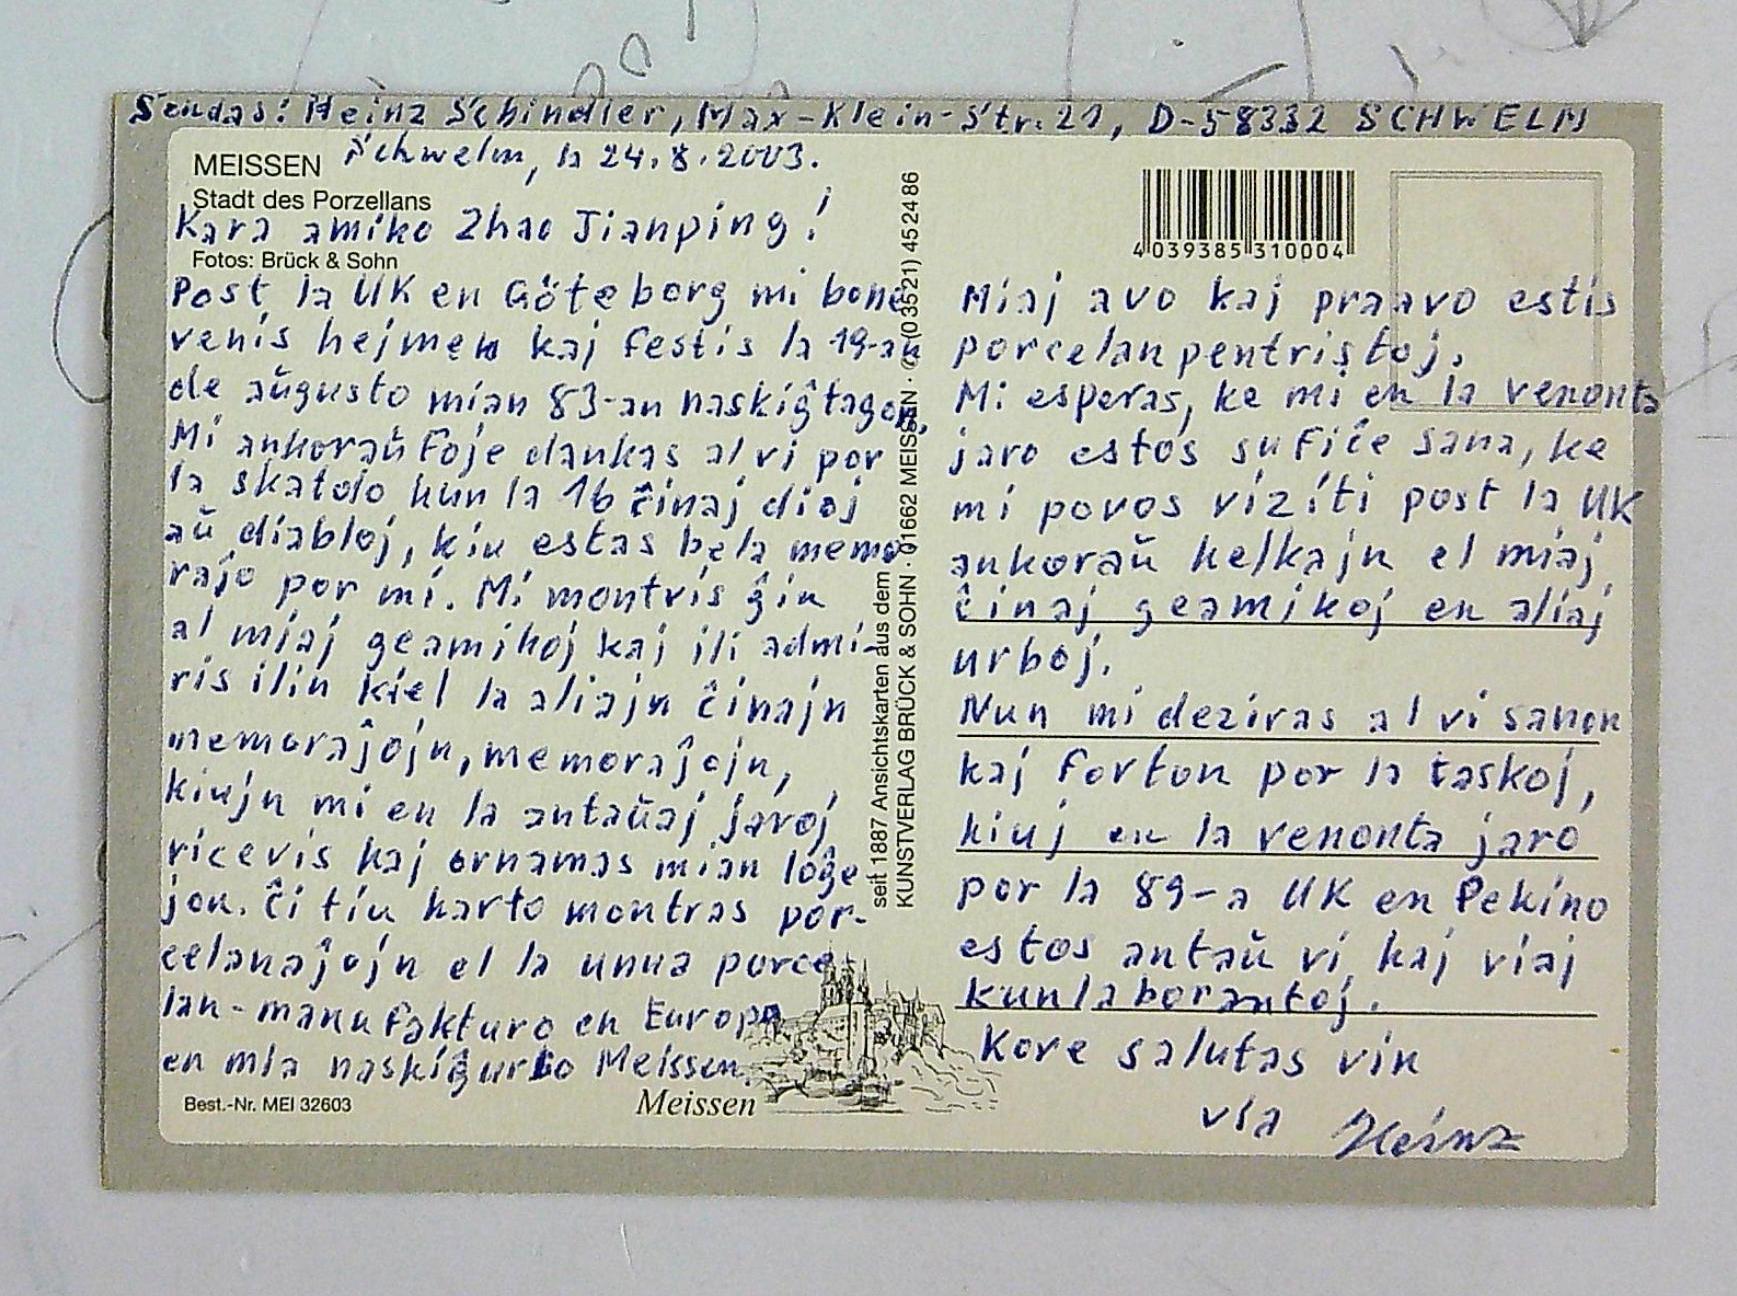 Sendas: Heinz Schindler, Max-Klein-Str. 21, D-58332 SCHWELM
MEISSEN
Schwelm, la 24.8.2003.
Stadt des Porzellans
Kara amiko Zhao Jianping!
Fotos: Brück & Sohn
Post la UK en Göteborg mi bone
venis hejmen kaj festis la 19-an
de aŭgusto mian 83-an naskiĝtagon.
Mi ankoraŭfoje dankas al vi por
la skatolo kun la 16 ĉinaj dioj
aŭ diabloj, kiu estas bela memo-
rajo por mi. Mi montris ĝin
al miaj geamikoj kaj ili admi-
ris ilin kiel la aliajn ĉinajn
memoraĵojn, memoraĵojn,
kiujn mi en la antaŭaj jaroj
ricevis kaj ornamas mian loĝe
jon. Ĉi tiu karto montras por-
celanaĵojn el la unua porce-
lan-manufakturo en Europa
en mia naskiĝurbo Meissen.
Best.-Nr. MEI 32603
Meissen
seit 1887 Ansichtskarten aus dem
KUNSTVERLAG BRÜCK & SOHN · 01662 MEISSEN · ✆ (0 35 21) 45 24 86
4 039385 310004
Miaj avo kaj praavo estis
porcelanpentristoj.
Mi esperas, ke mi en la venonta
jaro estos sufiĉe sana, ke
mi povos viziti post la UK
ankoraŭ kelkajn el miaj
ĉinaj geamikoj en aliaj
urboj.
Nun mi deziras al vi sanon
kaj forton por la taskoj,
kiuj en la venonta jaro
por la 89-a UK en Pekino
estos antaŭ vi kaj viaj
kunlaborantoj.
Kore salutas vin
via Heinz